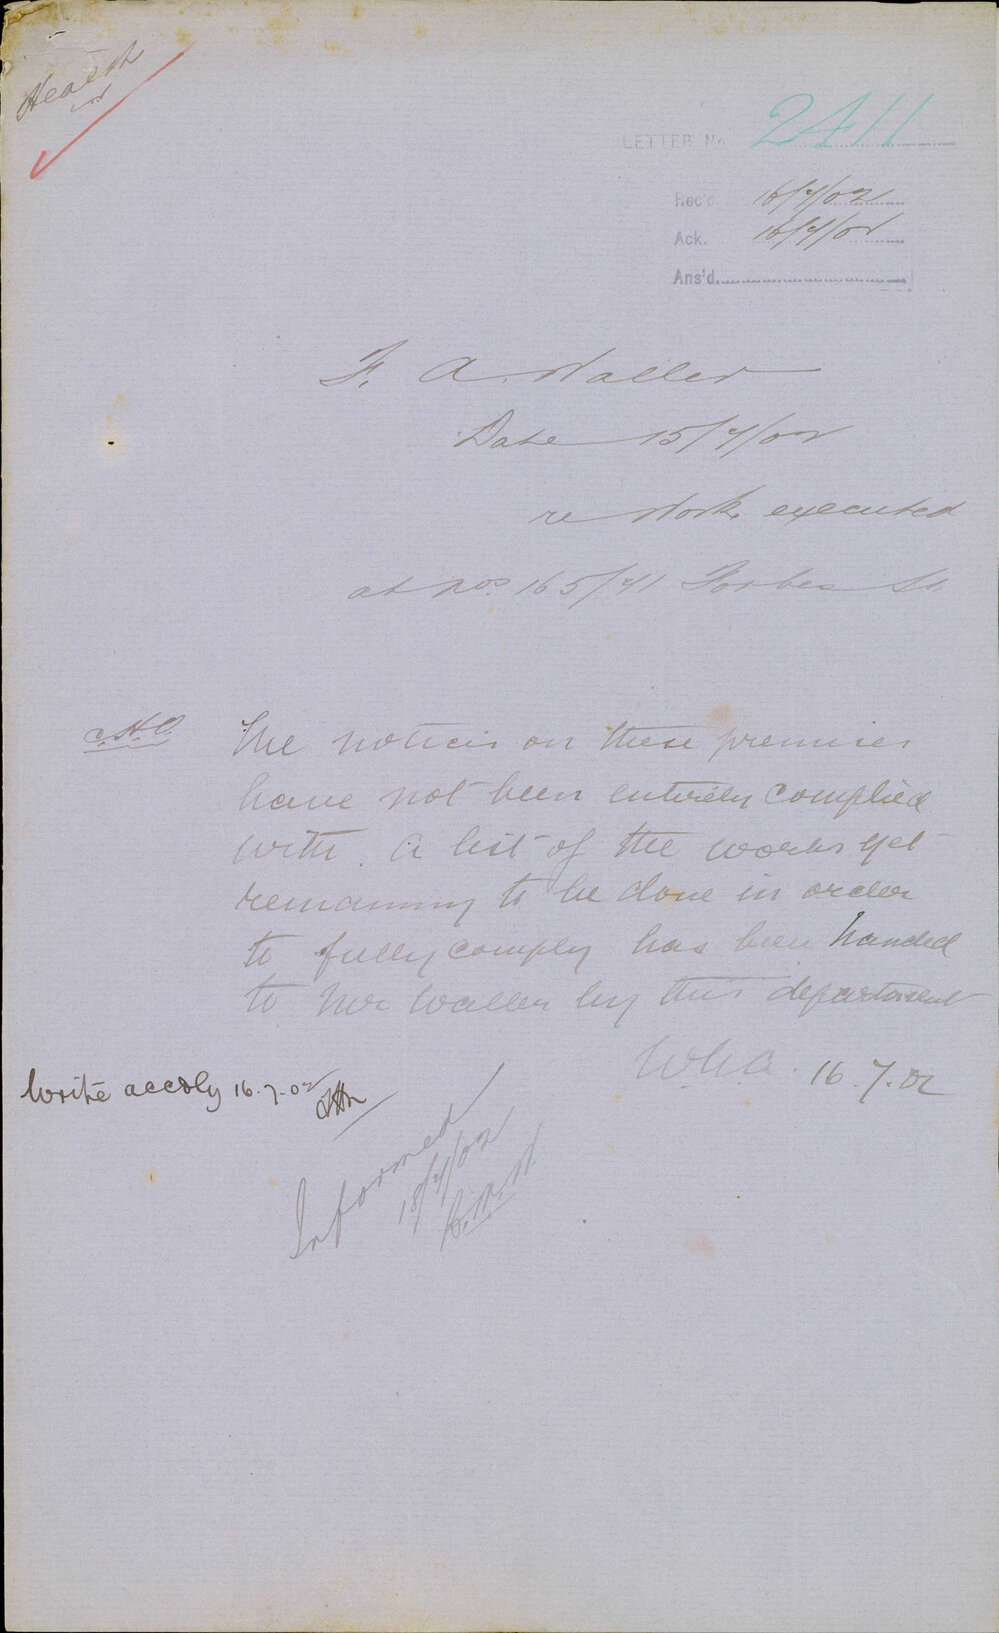 Health
LETTER No 2411
Rec'd 16/7/02
Ack. 16/7/02
Ans'd.
F. A. Waller
Date 15/7/02
re Works executed
at nos. 165/71 Forbes St
C.H.O. The notices on these premises
have not been entirely complied
with. A list of the works yet
remaining to be done in order
to fully comply has been handed
to Mr Waller by this department
16.7.02
Write accdly 16.7.02
Informed
18/7/02